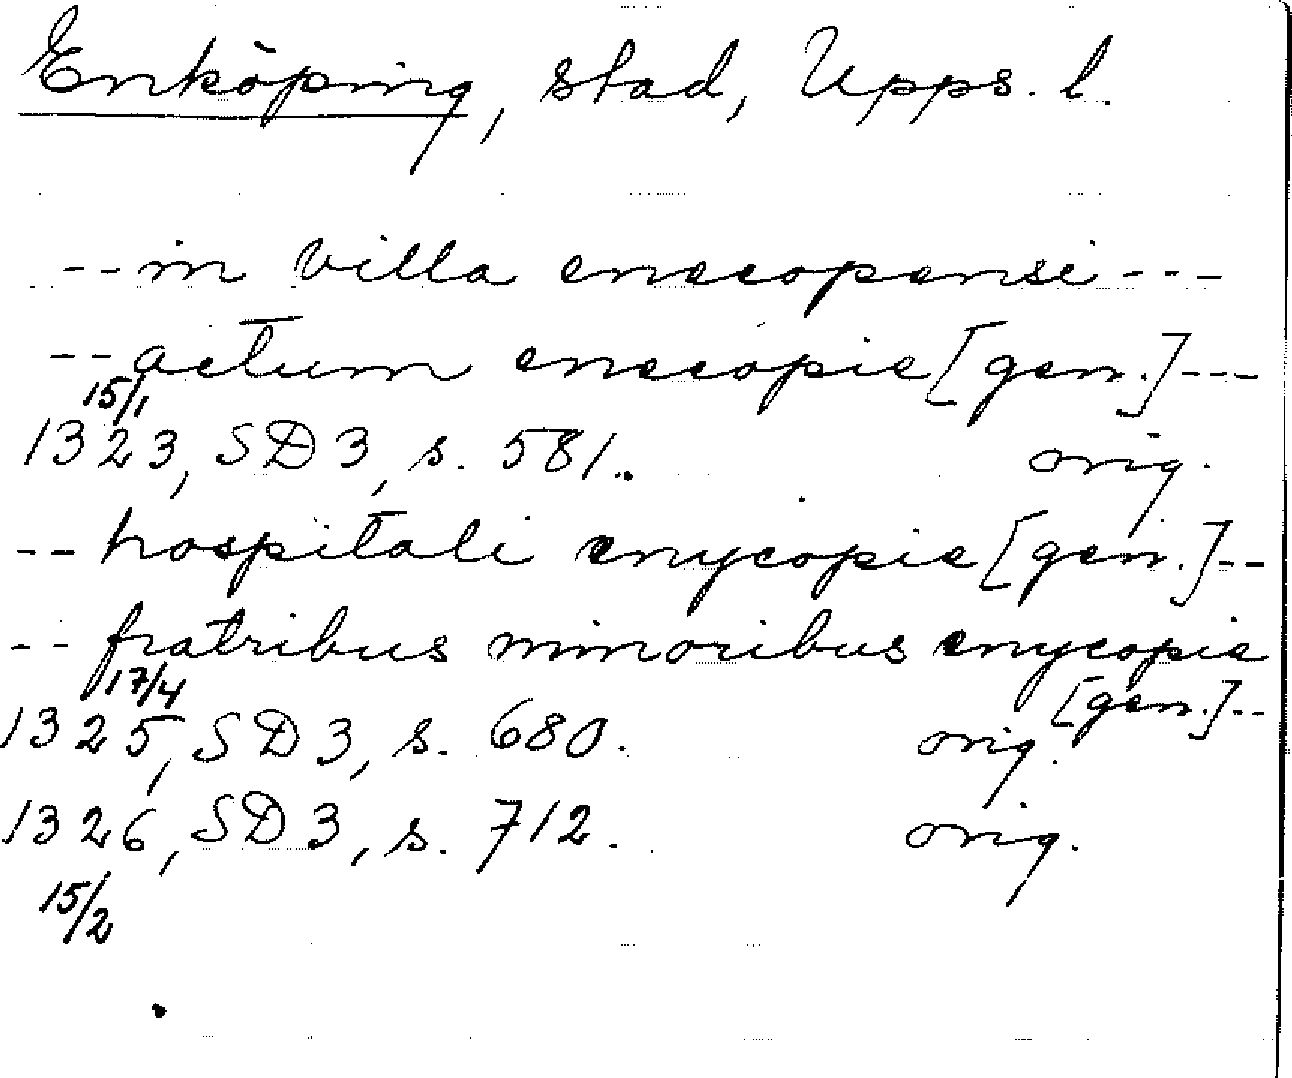 Enköping, stad, Upps. l.
--in villa enecopensi---
--actum enecopie [gen.]---
15/1
1323, SD 3, s. 581. orig.
--hospitali enycopie [gen.]--
--fratribus minoribus enycopie
[gen.]--
17/4
1325, SD 3, s. 680. orig.
1326, SD 3, s. 712. orig.
15/2